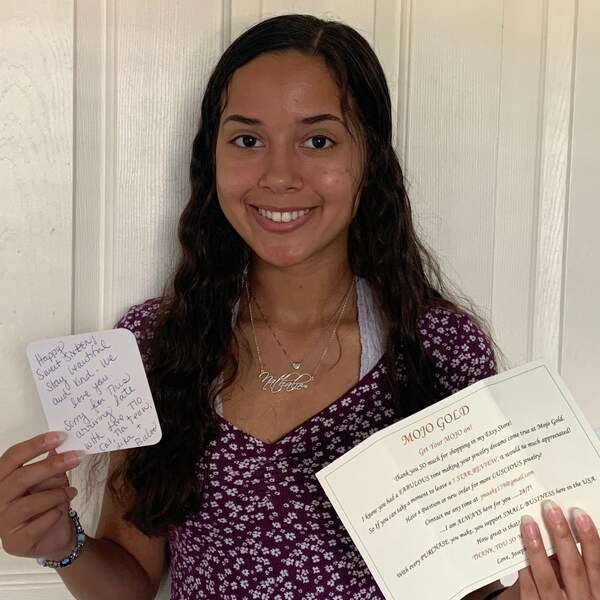 Happy
Sweet Sixteen!
Stay beautiful
and kind. We
love you.
Sorry for this
arriving late
with love,
Nathalie
MOJO GOLD
Get Your MOJO on!
Thank you SO much for shopping in my Etsy Store!
I know you had a FABULOUS time making your jewelry dreams come true at Mojo Gold.
So If you can take a moment to leave a 5 STAR REVIEW, it would be much appreciated!
Have a question or new order for more LUSCIOUS jewelry?
Contact me any time at:
@gmail.com
....I am ALWAYS here for you ....24/7!
With every PURCHASE you make, you support SMALL BUSINESS here in the USA.
How great is that?
THANK YOU SO
Love, Joseph